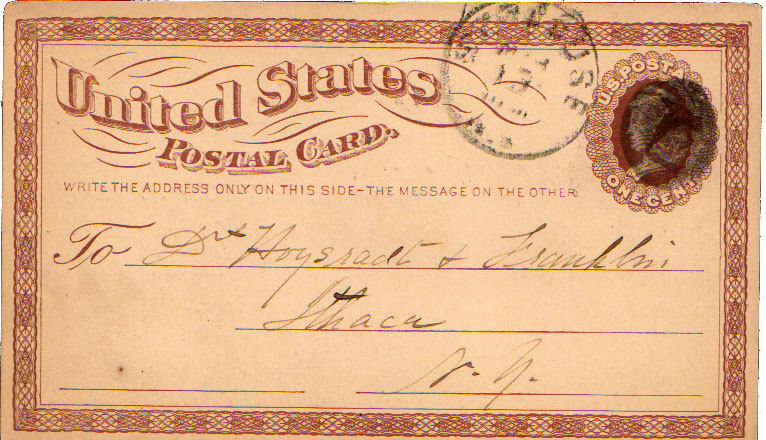 United States
POSTAL CARD.
SYRACUSE
U.S. POSTAGE
ONE CENT
WRITE THE ADDRESS ONLY ON THIS SIDE—THE MESSAGE ON THE OTHER
To Drs Hoysradt & Franklin
Ithaca
N. Y.